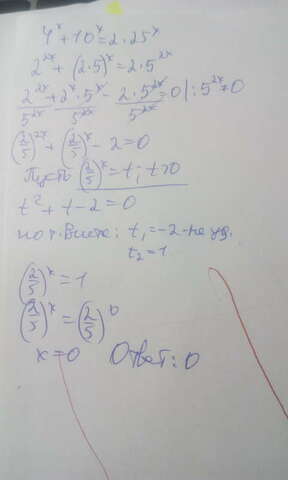 4^x + 10^x = 2·25^x
2^{2x} + (2·5)^x = 2·5^{2x}
2^{2x}/5^{2x} + 2^x·5^x/5^{2x} - 2·5^{2x}/5^{2x} = 0 |: 5^{2x} ≠ 0
(2/5)^{2x} + (2/5)^x - 2 = 0
Пусть (2/5)^x = t; t>0
t² + t - 2 = 0
по т. Виета: t₁ = -2 - не уд.
t₂ = 1
(2/5)^x = 1
(2/5)^x = (2/5)^0
x = 0 Ответ: 0